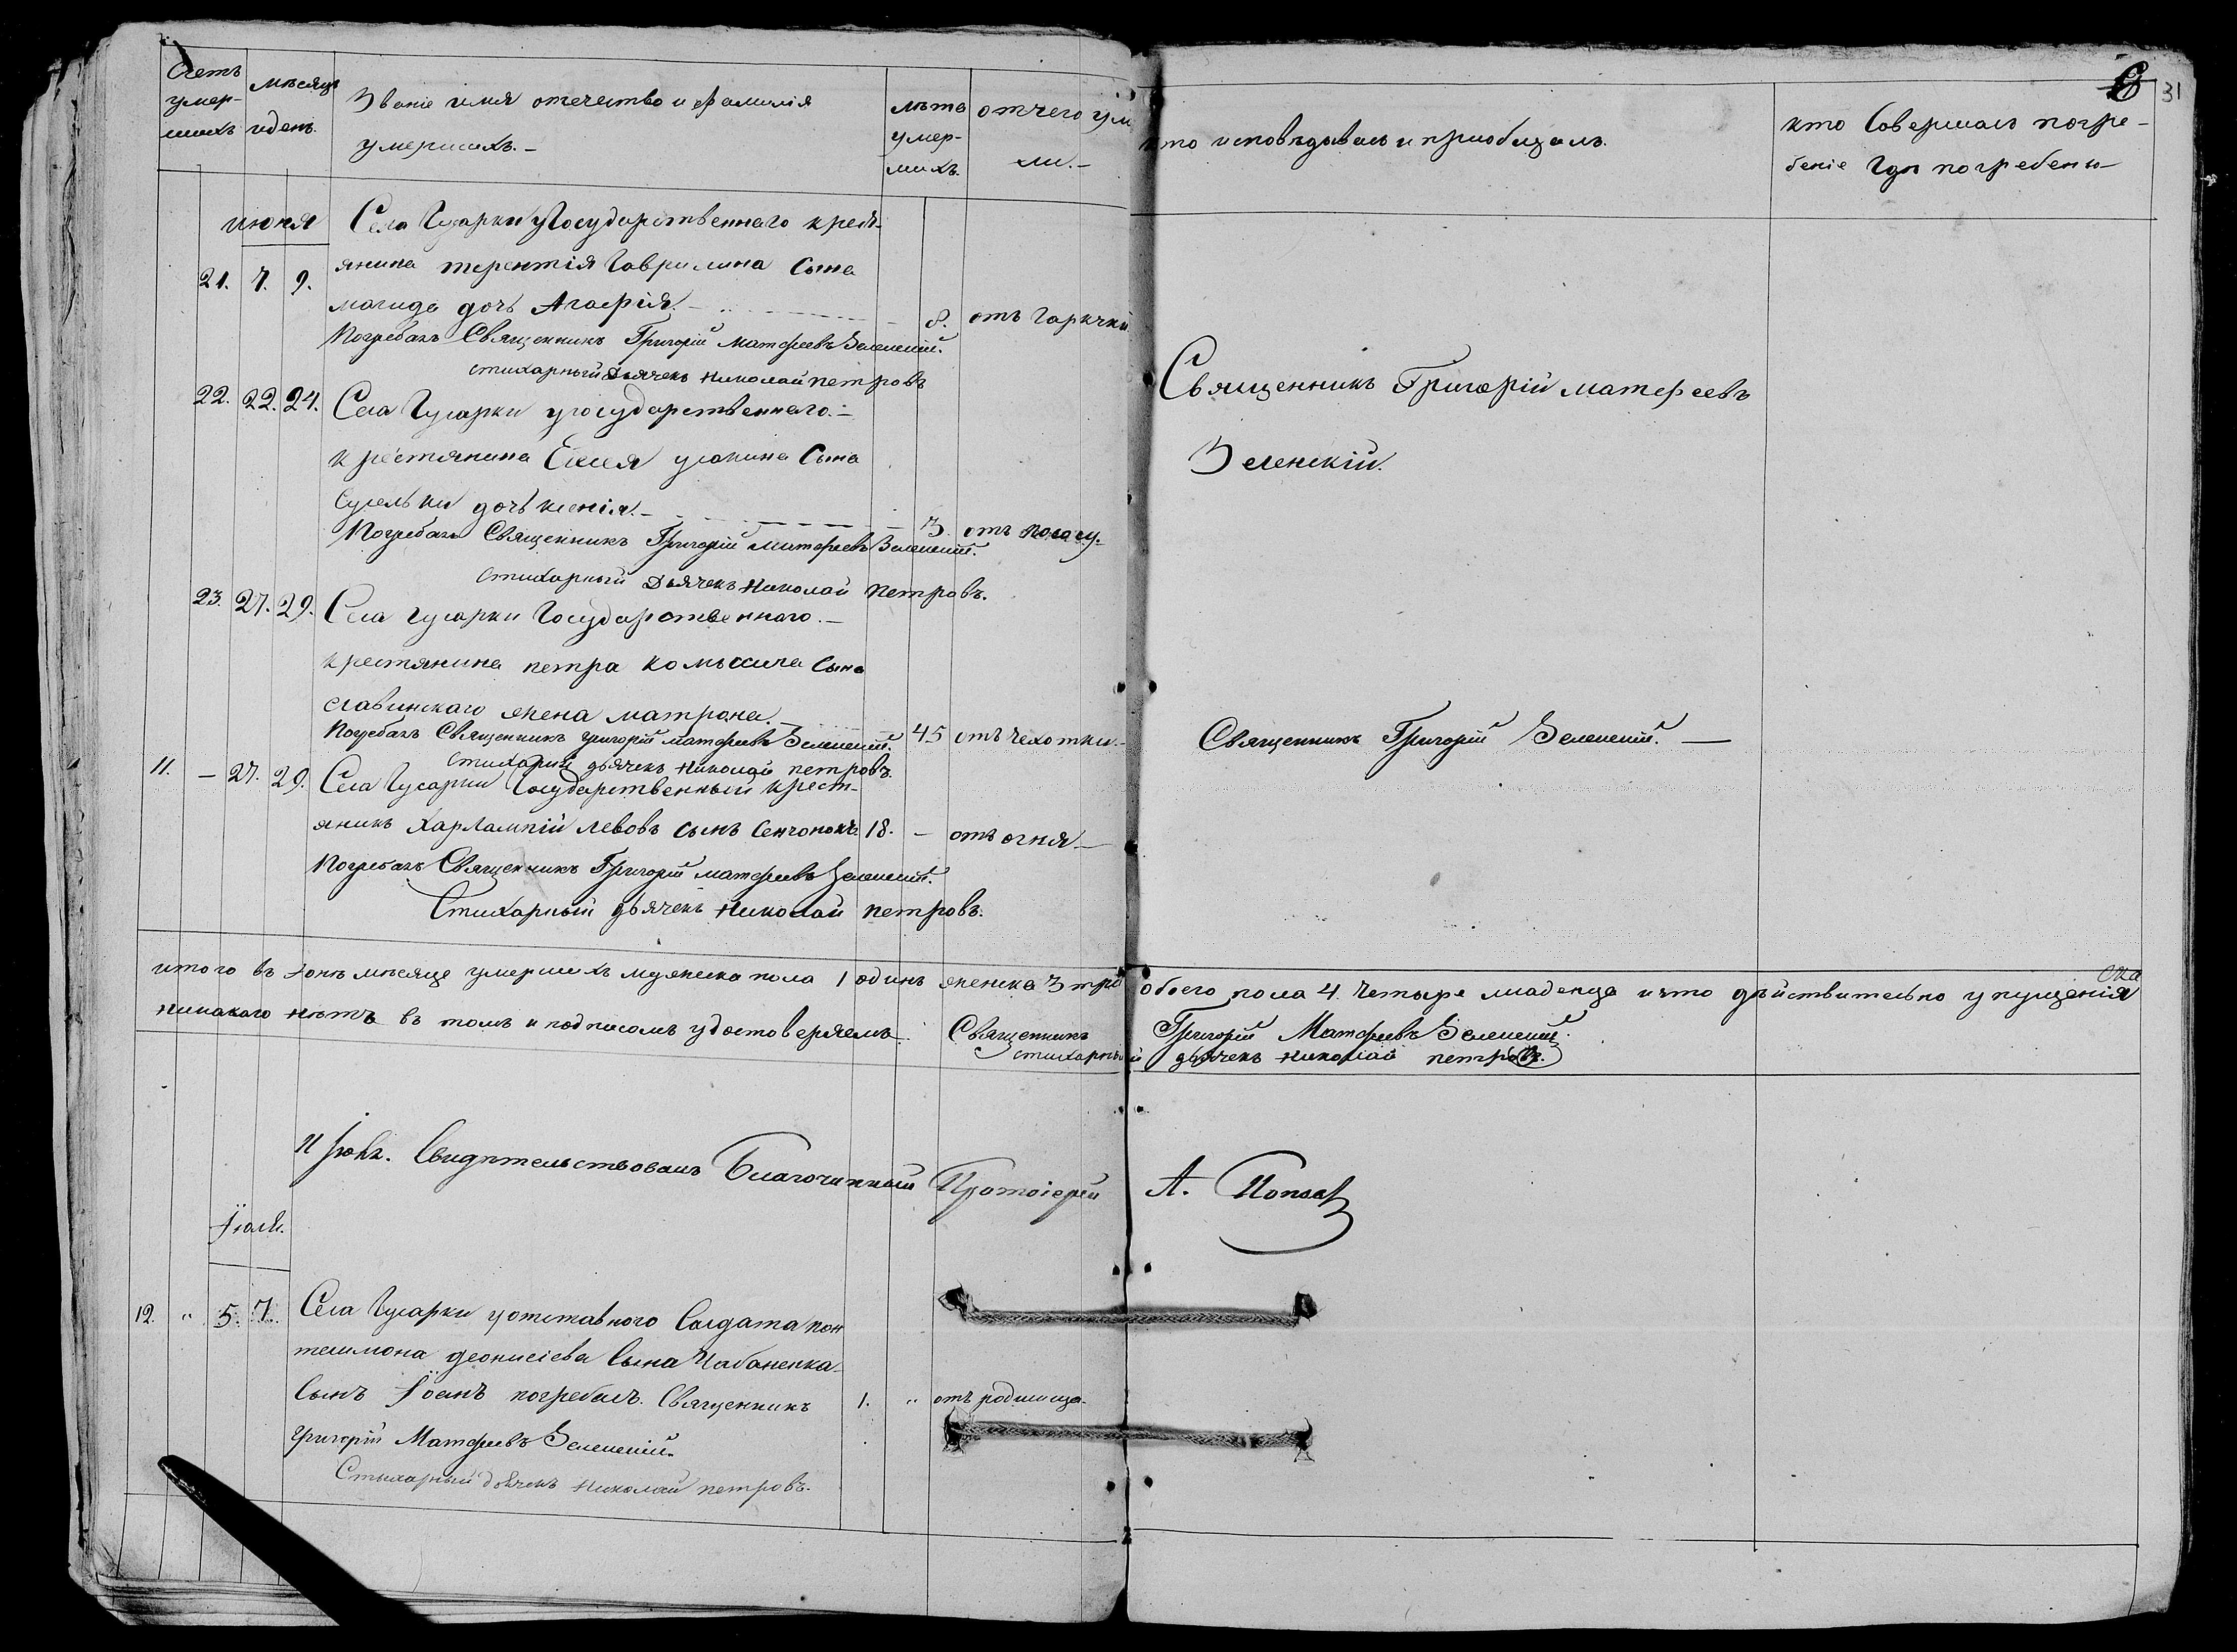 Счетъ умер-шихъ
мѣсяцъ и день.
Званіе имя отечество и фамилія
умершихъ.-
лѣта умер-шихъ.
отчего ум
ли.-
кто исповѣдывалъ и пріобщалъ.
кто Совершалъ погре-
беніе Гдѣ погребены
31
июня
Села Гусарки у Государственнаго крест-
21. 7. 9. янина терентія Гаврилина Сына
дочь Агафія. 8. отъ Гарячки
Погребалъ Священникъ Григорій матфеевъ Зеленскій.
стихарный Дьячекъ Николай петровъ
22. 22. 24. Села Гусарки у государственнаго.-
крестянина Сына
дочь ксенія.- 3 отъ
Погребалъ Священникъ Григорій матфеевъ Зеленскій.
Стихарный Дьячекъ Николай петровъ.
Священникъ Григорій матфеевъ
Зеленскій.
23. 27. 29. Села Гусарки Государственнаго.-
крестянина петра Сына
славинскаго жена матрона. 45 отъ чехотки.-
Погребалъ Священникъ григорій матфеевъ Зеленскій.
Стихарній дьячекъ Николай петровъ.
Священникъ Григорій Зеленскій.
11. - 27. 29. Села Гусарки Государственный крест-
яникъ Харлампій левовъ сынъ Сенчонокъ 18. - отъ огня
Погребалъ Священникъ Григорій матфеевъ Зеленскій.
Стихарный дьячекъ Николай петровъ.
итого въ юнѣ мѣсяце умершихъ мужеска пола 1 одинъ женска 3 три обоего пола 4 Четыре младенца и что дѣйствительно упущенія
никакого нѣтъ въ томъ и подписомъ удостоверяемъ. Священникъ Григорій Матфеевъ Зеленскій.
стихарный дьячекъ Николай петровъ.
Свидѣтельствовалъ Благочинный Протоіерей А. Поповъ
Іюль.
12. " 5. 7. Села Гусарки у отставного Салдата пон
телимона деонисіева Сына Чабаненка
Сынъ Іоанъ погребалъ Священникъ 1. " отъ родимца.
григорій Матфеевъ Зеленскій.
Стыхарный дьячекъ Николай петровъ.